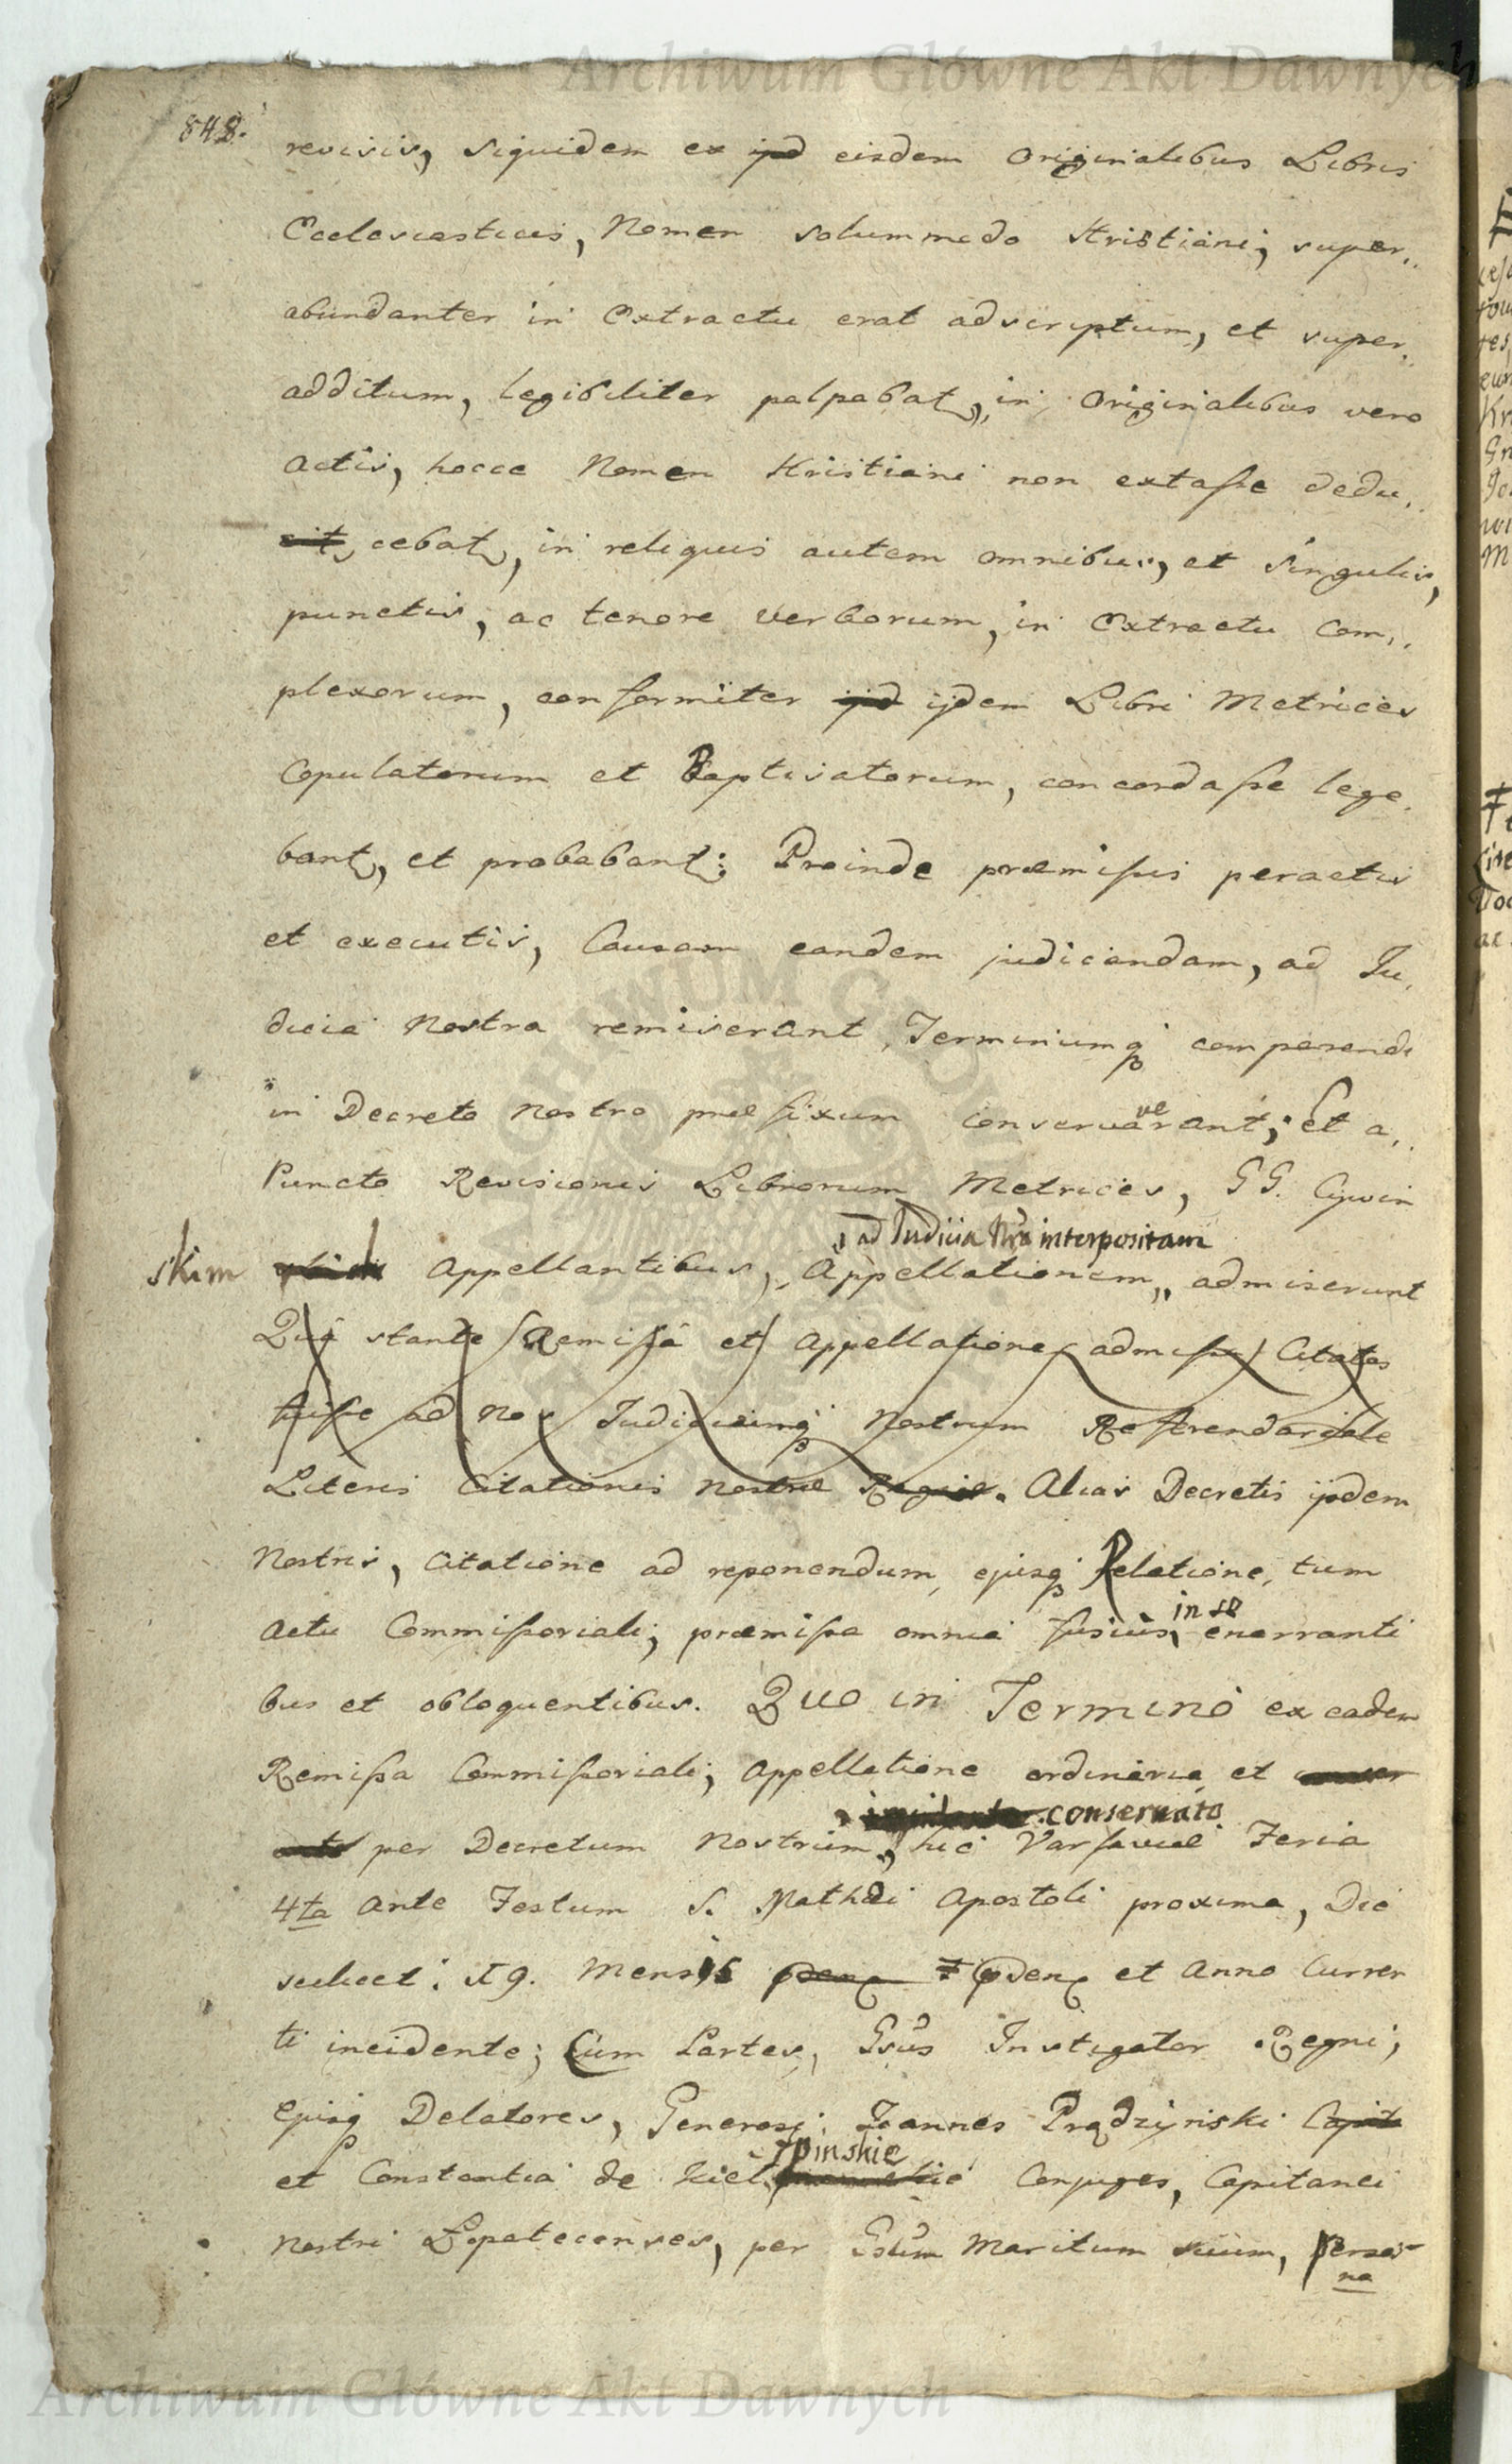 Archiwum Główne Akt Dawnych
848.
revisis, siquidem ex ipd eisdem Originalibus Libris
Ecclesiasticis, Nomen solummodo Kristiani, super,,
abundanter in Extractu erat adscriptum, et super,,
additum, legibiliter palpabat, in Originalibus vero
Actis, hocce Nomen Kristiani non extasse dedu,,
cit, cebat, in reliquis autem omnibus, et singulis,
punctis, ac tenore verborum, in Extractu Com,,
plexorum, conformiter ijd ijdem Libri Metrices
Copulatorum et Baptisatorum, concordasse lege,
bant, et probabant: Proinde præmissis peractis
et executis, Causam eandem judicandam, ad Ju,
dicia Nostra remiserant, Terminumq comparendi
in Decreto Nostro præfixum conservaverant; Et a,,
Puncto Revisionis Librorum Metrices, GG. Cywin
skim Appellantibus, Appellationem, ad Judicia Nra interpositam admiserunt
Quâ stante Remissâ et Appellatione admissa Citatos
fuisse ad nos Judiciumq Nostrum Referendariale
Literis Citationis Nostræ Regiæ. Alias Decretis ijsdem
Nostris, Citatione ad reponendum, ejusq Relatione, tum
Actu Commissoriali, præmissa omnia fusius in se enarranti
bus et obloquentibus. Quo in Termino ex eadem
Remissa Commissoriali, Appellatione ordinaria et
per Decretum Nostrum, conservato hic Varsaviæ Feria
4ta Ante Festum S. Mathæi Apostoli proxima, Die
scilicet: 19. Mensis pdenq pdenq et Anno Curren
ti incidente; Cum Partes, Gsus Instigator Regni,
Ejusq Delatores, Generosi Joannes Prądzyński Capit
et Constantia de Kiełpinskie Conjuges, Capitanei
Nostri Łopatecenses, per Gsum Maritum suum, Perso-
na
Archiwum Główne Akt Dawnych